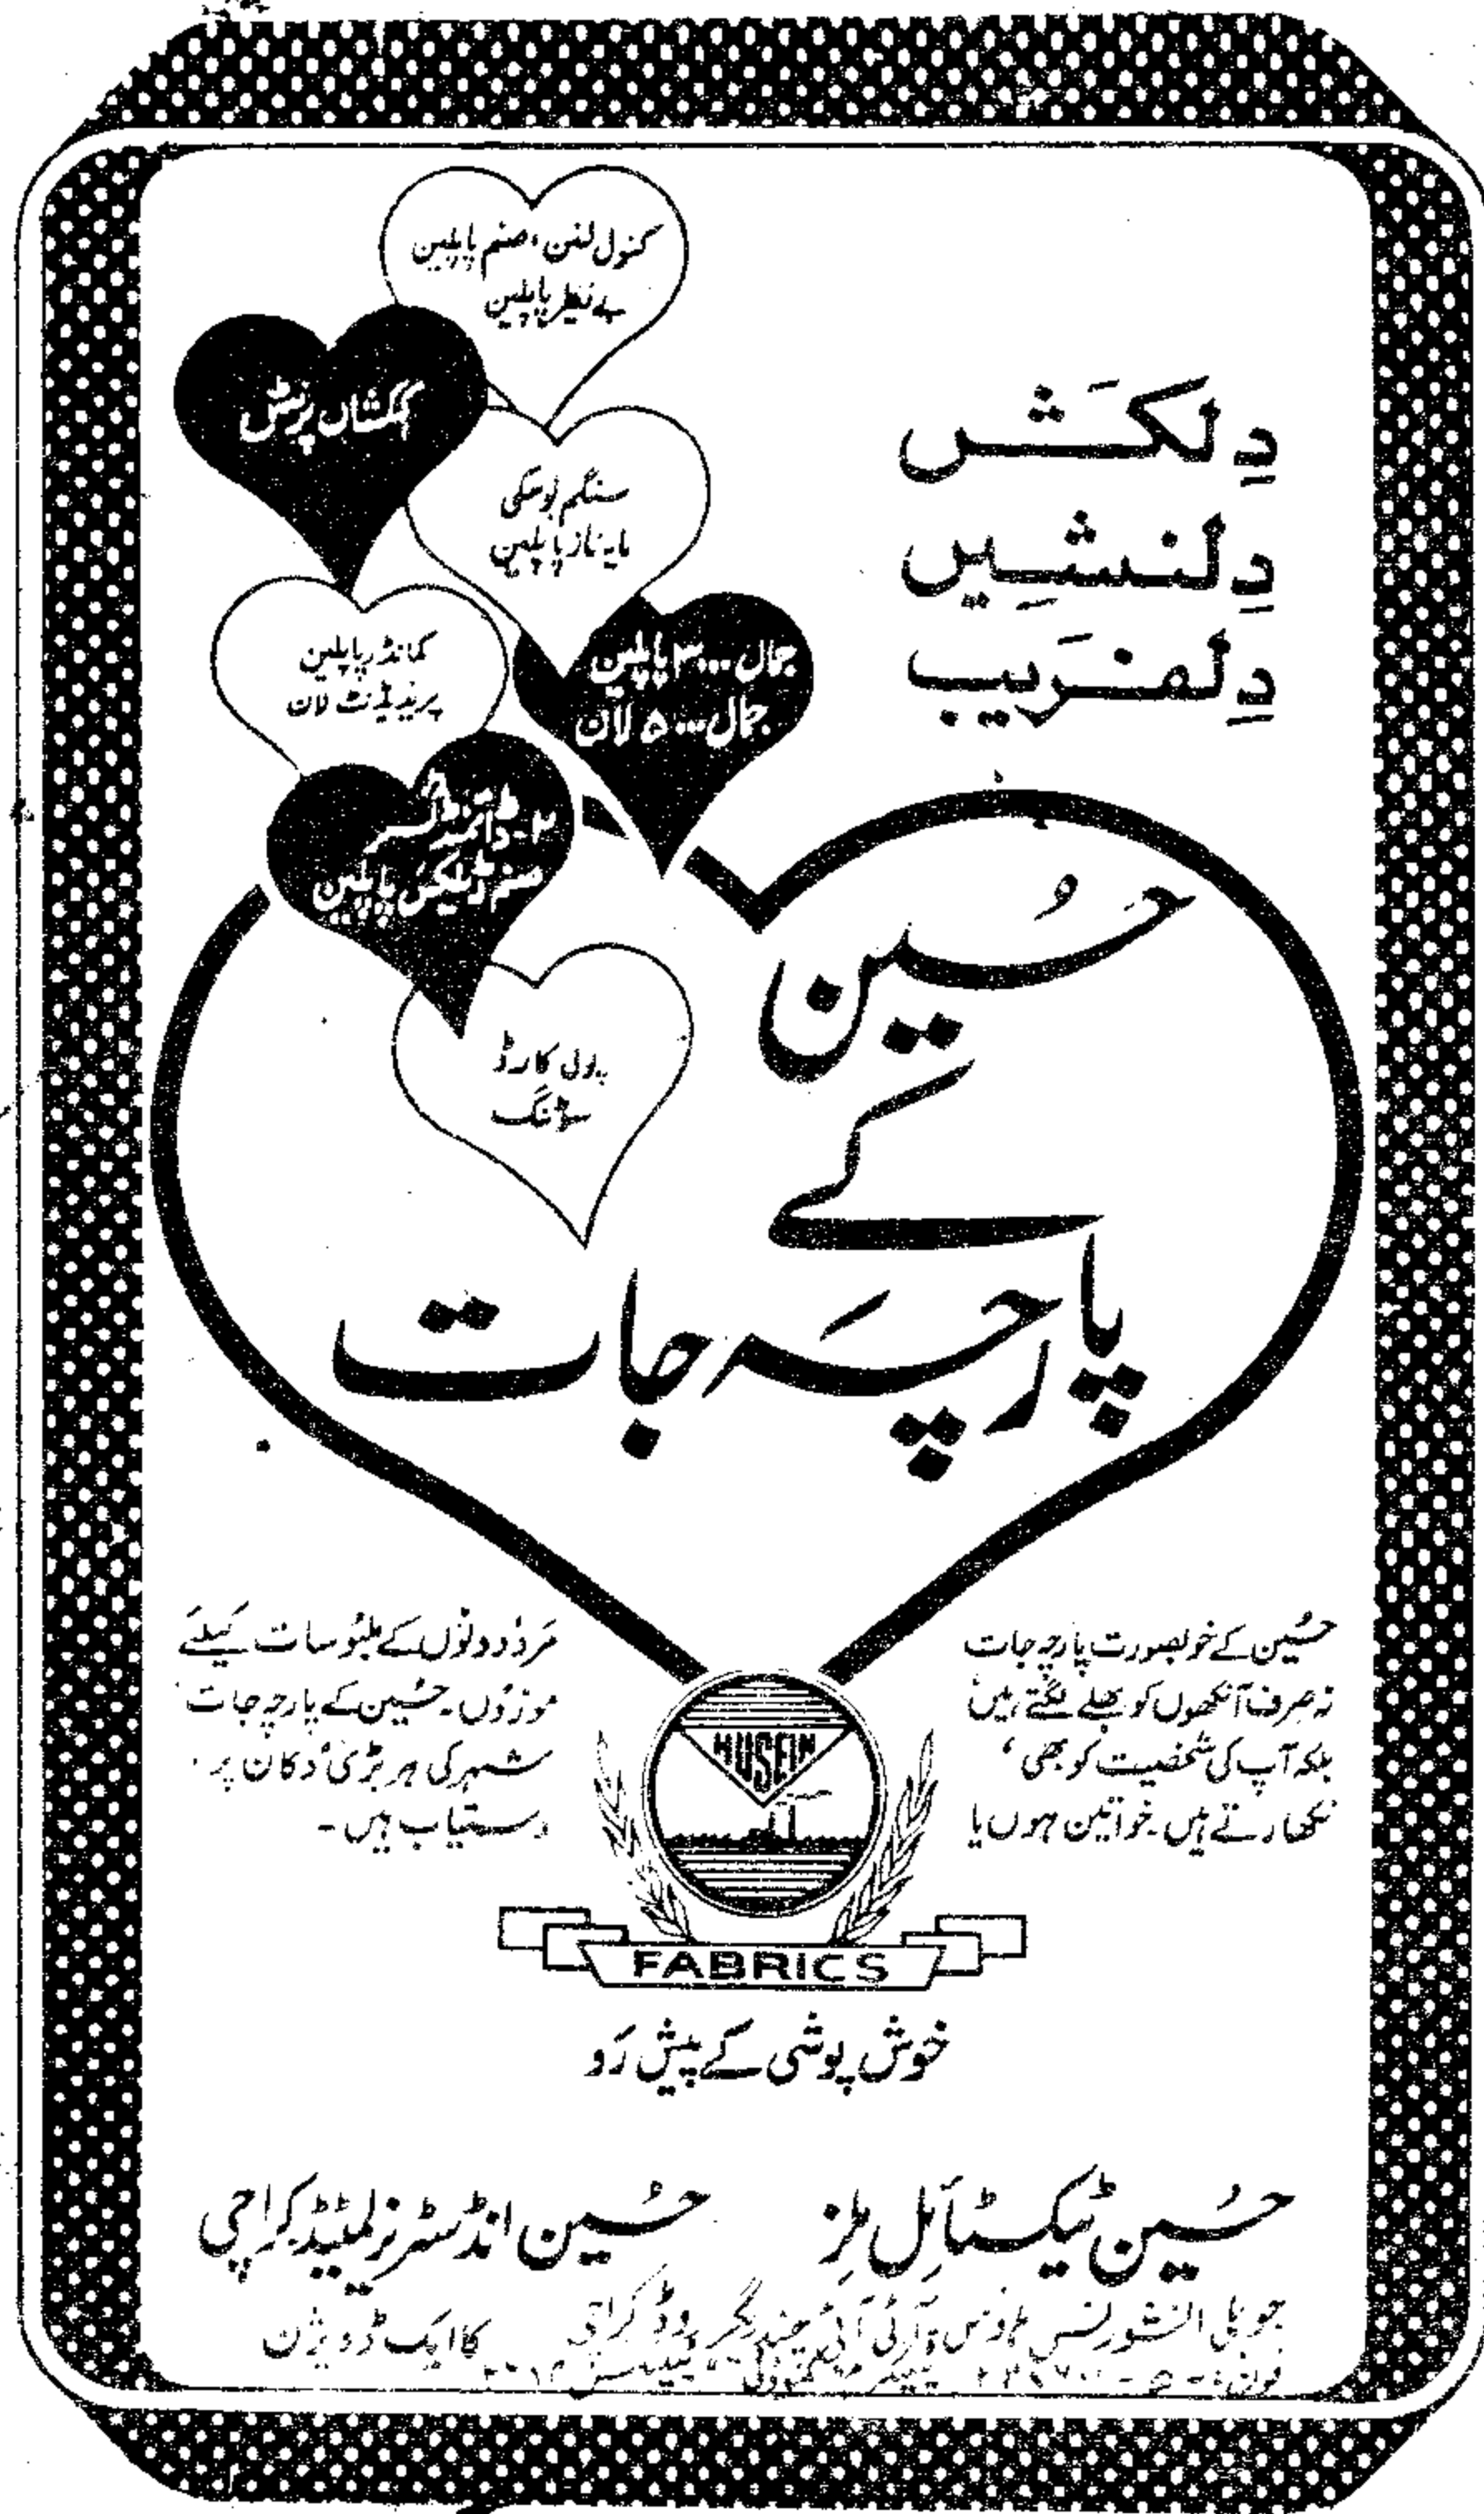 دِلکَش
دِلنشِیں
دِلفَریب
کنول لنن، صنم پاپلین
بے نظیر پاپلین
کہکشاں پرنٹس
سنگم بوسکی
مایہ ناز پاپلین
کمانڈر پاپلین
پریذیڈنٹ لان
جمال ۳۰۰۰ پاپلین
جمال ۵۰۰۰ لان
صنم ڈیلکس پاپلین
پولی کارڈ
سوٹنگ
حُسین
کے
پارچہ جات
حُسین کے خوبصورت پارچہ جات
نہ صرف آنکھوں کو بھلے لگتے ہیں
بلکہ آپ کی شخصیت کو بھی
نکھارتے ہیں۔ خواتین ہوں یا
مَرد دونوں کے ملبُوسات کیلئے
موزوں۔ حُسین کے پارچہ جات
شہر کی ہر بڑی دُکان پر
دستیاب ہیں۔
HUSEIN
FABRICS
خوش پوشی کے پیش رَو
حُسین ٹیکسٹائل مِلز
جوبلی انشورنس ہاؤس آئی آئی چندریگر روڈ کراچی
فون:
حُسین انڈسٹریز لمیٹڈ کراچی
کا ایک ڈویژن